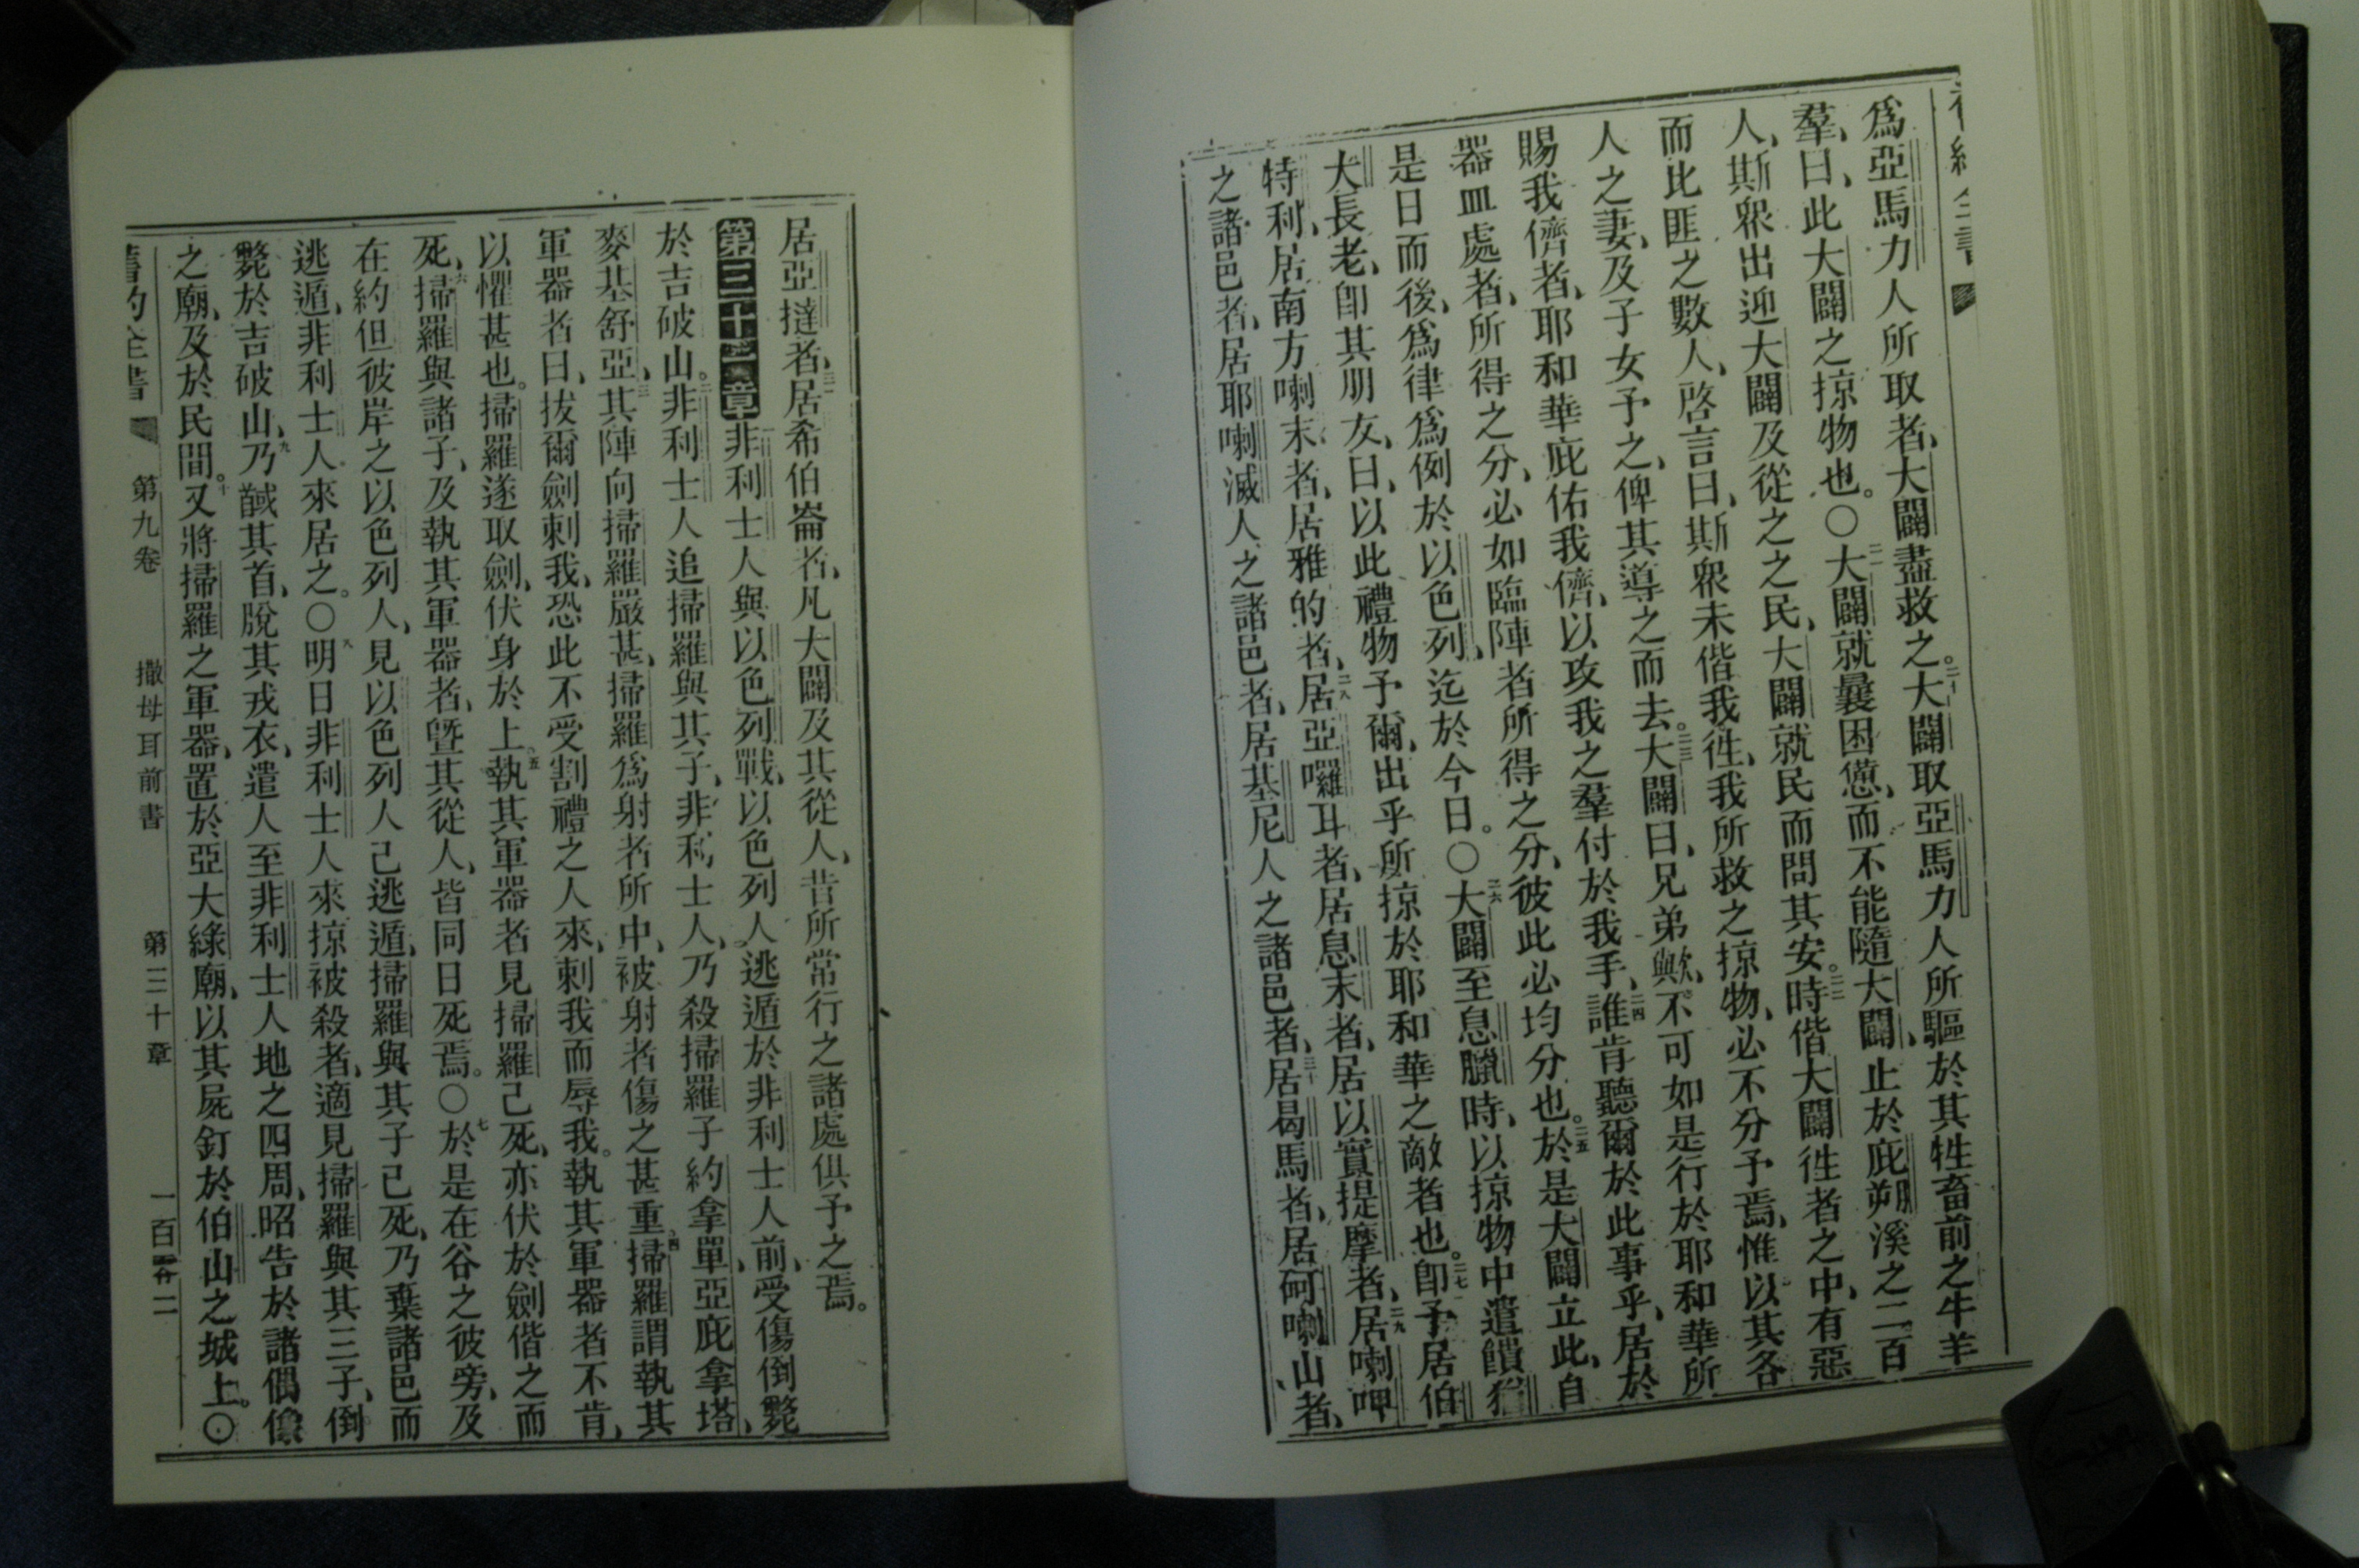 爲亞馬力人所取者、大闢盡救之。二十大闢取亞馬力人所驅於其牲畜前之牛羊
羣、曰、此大闢之掠物也。〇二一大闢就曩困憊、而不能隨大闢、止於庇朔溪之二百
人、斯衆出迎大闢及從之之民、大闢就民而問其安。二二時偕大闢徃者之中、有惡
而比匪之數人、啓言曰、斯衆未偕我徃、我所救之掠物、必不分予焉、惟以其各
人之妻、及子女予之、俾其導之而去。二三大闢曰、兄弟歟、不可如是行於耶和華所
賜我儕者、耶和華庇佑我儕、以攻我之羣付於我手、二四誰肯聽爾於此事乎、居於
器皿處者、所得之分、必如臨陣者所得之分、彼此必均分也。二五於是大闢立此、自
是日而後、爲律爲例於以色列、迄於今日。〇二六大闢至息臘時、以掠物中遣饋猶
大長老、卽其朋友、曰、以此禮物予爾、出乎所掠於耶和華之敵者也。二七卽予居伯
特利、居南方喇末者、居雅的者、二八居亞囉耳者、居息末者、居以實提摩者、二九居喇呷
之諸邑者、居耶喇滅人之諸邑者、居基尼人之諸邑者、三十居曷馬者、居砢喇山者、
居亞撻者、三一居希伯崙者、凡大闢及其從人、昔所常行之諸處俱予之焉。
第三十一章一非利士人與以色列戰、以色列人逃遁於非利士人前、受傷倒斃
於吉破山。二非利士人追掃羅與其子、非利士人、乃殺掃羅子約拿單、亞庇拿塔、
麥基舒亞、三其陣向掃羅嚴甚、掃羅爲射者所中、被射者傷之甚重、四掃羅謂執其
軍器者曰、拔爾劍刺我、恐此不受割禮之人來、刺我而辱我。執其軍器者不肯、
以懼甚也。掃羅遂取劍、伏身於上、五執其軍器者見掃羅己死、亦伏於劍偕之而
死、六掃羅與諸子、及執其軍器者、曁其從人、皆同日死焉。〇七於是在谷之彼旁、及
在約但彼岸之以色列人、見以色列人己逃遁、掃羅與其子己死、乃棄諸邑而
逃遁、非利士人來居之。〇八明日非利士人來掠被殺者、適見掃羅與其三子、倒
斃於吉破山、九乃馘其首、脫其戎衣、遣人至非利士人地之四周、昭告於諸偶像
之廟、及於民間。十又將掃羅之軍器、置於亞大綠廟、以其屍釘於伯山之城上。〇
舊約全書 第九卷 撒母耳前書 第三十章